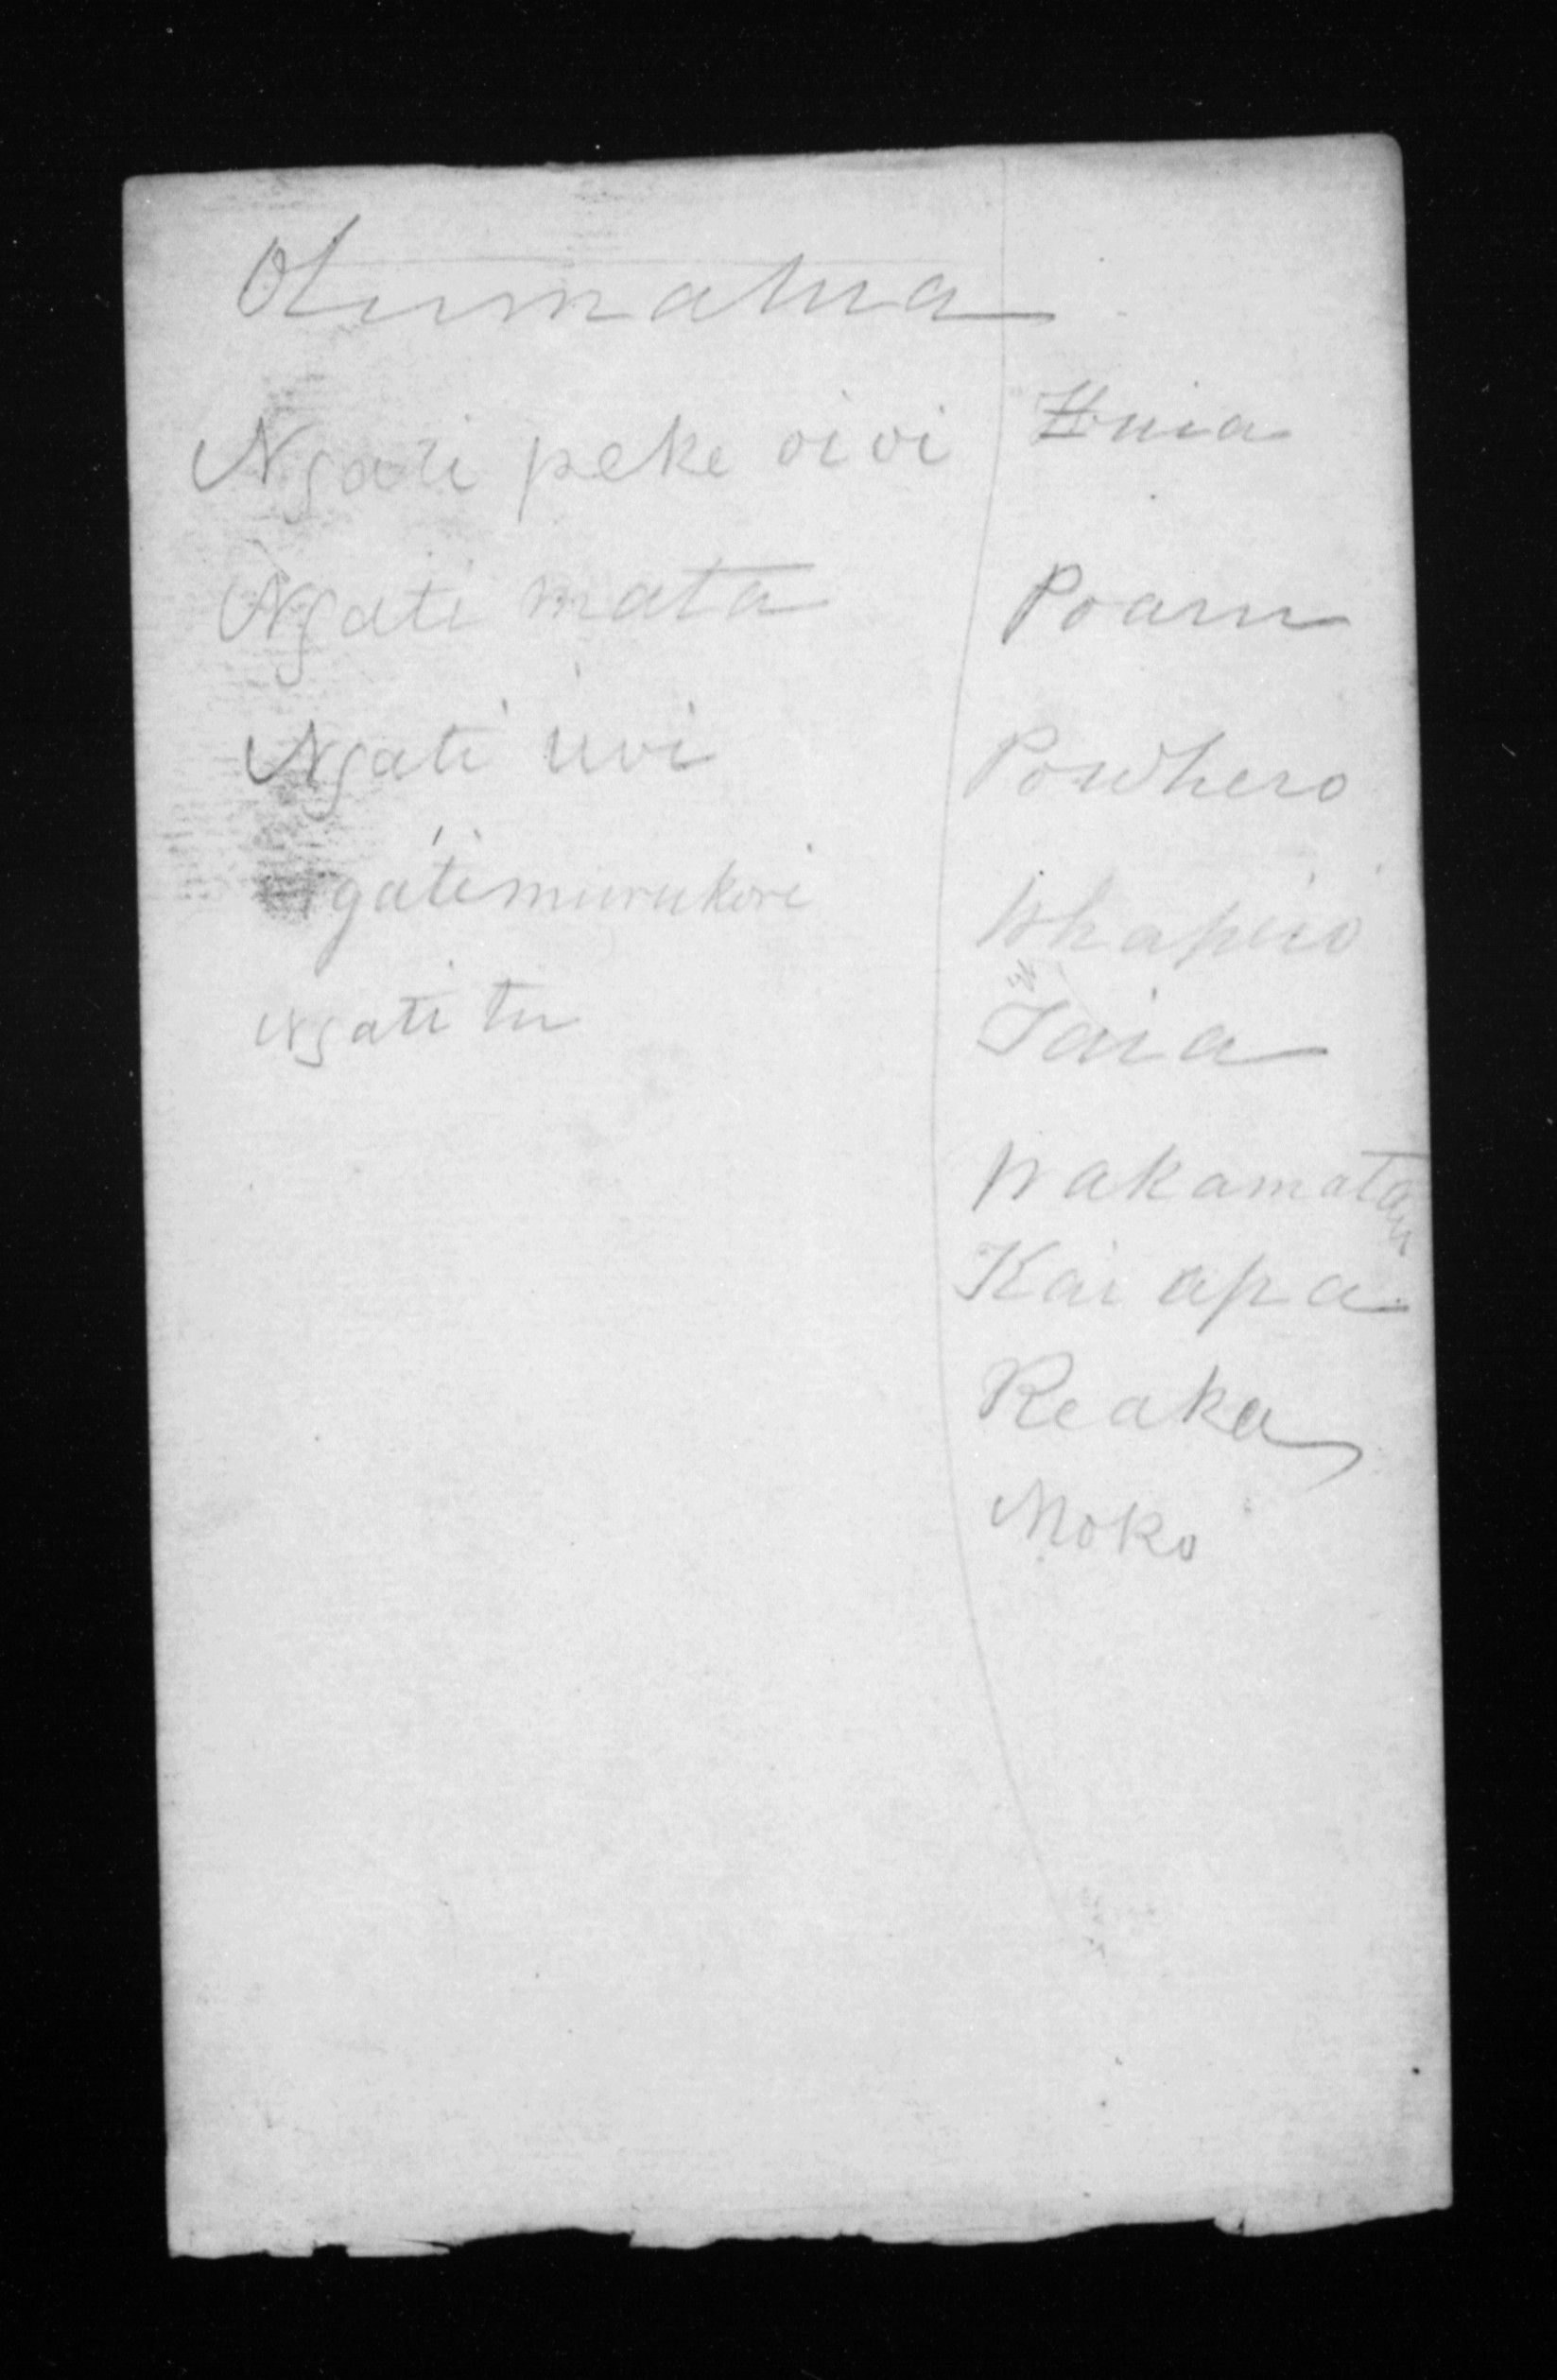 Otumatua
Ngati peke oi oi
Ngati mata
Ngati uvi
Ngatimurukori
Ngati tu
Huia
Poaru
Powhero
Whapiro
Taia
Wakamatau
Kai apa
Reaka
Moko